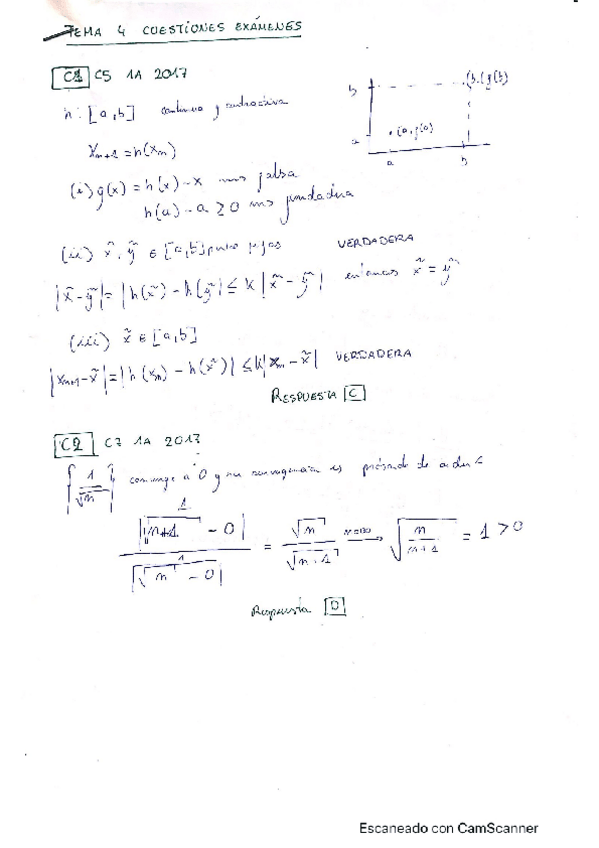 TEMA 4 CUESTIONES EXÁMENES
C1 C5 1A 2017
h: [a,b] continua y contractiva
b (b,g(b)
a (a,g(a)
a b
x_{n+1} = h(x_n)
(i) g(x) = h(x) - x falsa
h(a) - a ≥ 0
(ii) x̃, ỹ ∈ [a,b] puntos fijos VERDADERA
|x̃-ỹ| = |h(x̃) - h(ỹ)| ≤ K |x̃ - ỹ| entonces x̃ = ỹ
(iii) x̃ ∈ [a,b]
|x_{n+1} - x̃| = |h(x_n) - h(x̃)| ≤ K|x_n - x̃| VERDADERA
RESPUESTA C
C2 C7 1A 2017
{1/√n} converge a 0 y su convergencia es de orden
|1/√n+1 - 0| / |1/√n - 0| = √n / √n+1 n→∞ √n/n+1 = 1 > 0
Respuesta D
Escaneado con CamScanner